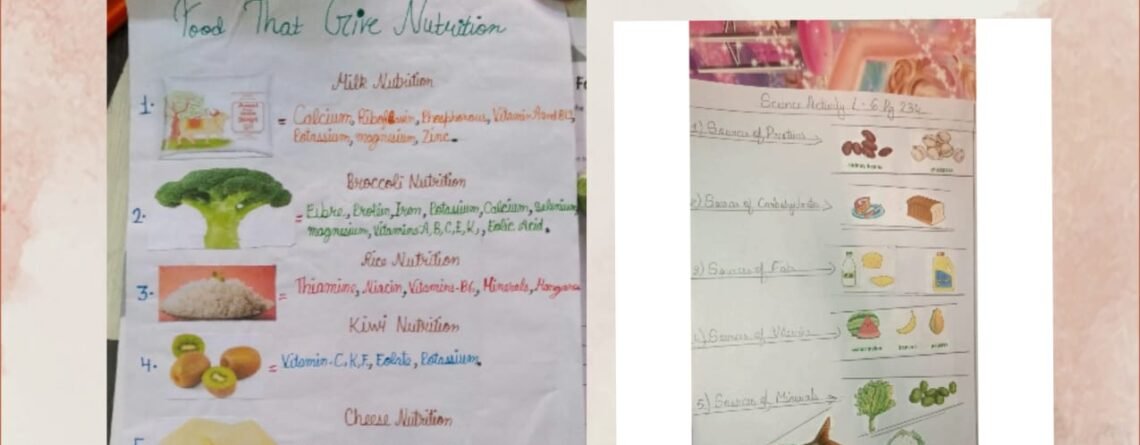 Food That Give Nutrition
Milk Nutrition
1.
= Calcium, Riboflavin, Phosphorous, Vitamin A and B12,
Potassium, magnesium, Zinc.
Broccoli Nutrition
2.
= Fibre, Protien, Iron, Potassium, Calcium, Selenium,
magnesium, Vitamins-A, B, C, E, K, Folic Acid.
Rice Nutrition
3.
= Thiamine, Niacin, Vitamins-B6, Minerals, Manganese
Kiwi Nutrition
4.
= Vitamin-C, K, E, Folate, Potassium.
Cheese Nutrition
Science Activity L-6 Pg
1) Sources of Proteins
kidney beans
2) Sources of Carbohydrates
3) Sources of Fats
4) Sources of Vitamins
watermelon banana
5) Sources of Minerals